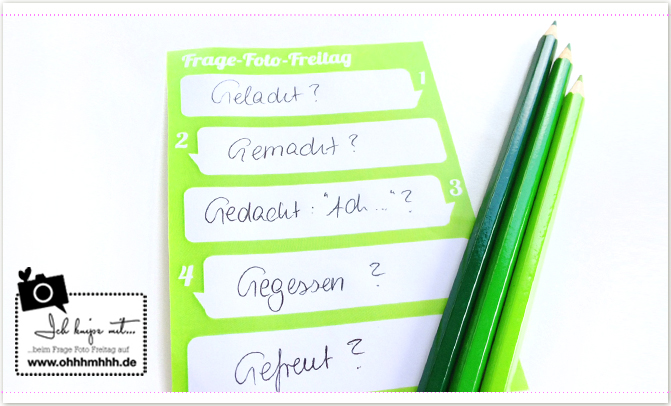 Frage-Foto-Freitag
1
Gelacht?
2
Gemacht?
3
Gedacht: "Ach..."?
4
Gegessen?
Gefreut?
Ich knips mit...
...beim Frage Foto Freitag auf
www.ohhhmhhh.de